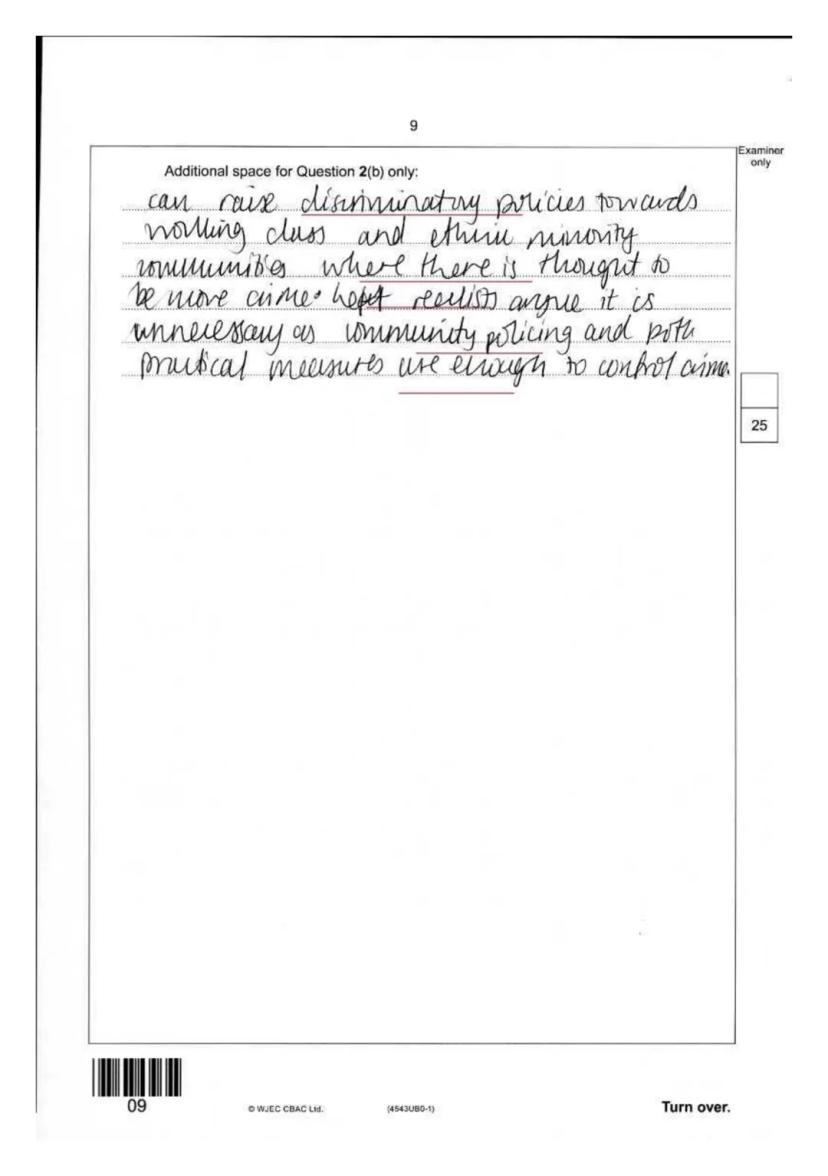 9
Examiner
only
Additional space for Question 2(b) only:
can raise discriminatory policies towards
working class and ethnic minority
communities where there is thought to
be more crime. left realists argue it is
unnecessary as community policing and both
practical measures are enough to control crime.
25
09
© WJEC CBAC Ltd.
(4543UB0-1)
Turn over.